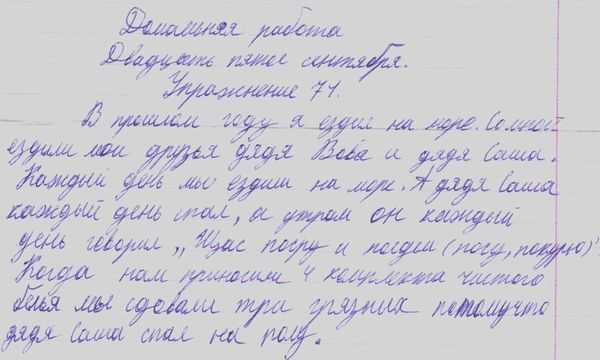 Домашняя работа
Двадцать пятое сентября.
Упражнение 71.
В прошлом году я ездил на море. Со мной
ездили мои друзья дядя Вова и дядя Саша.
Каждый день мы ездили на море. А дядя Саша
каждый день спал, а утром он каждый
день говорил „Щас погру и поедем (
Когда нам приносили 4 комплекта чистого
белья мы сдовали три грязних потомучто
дядя Саша спал на полу.